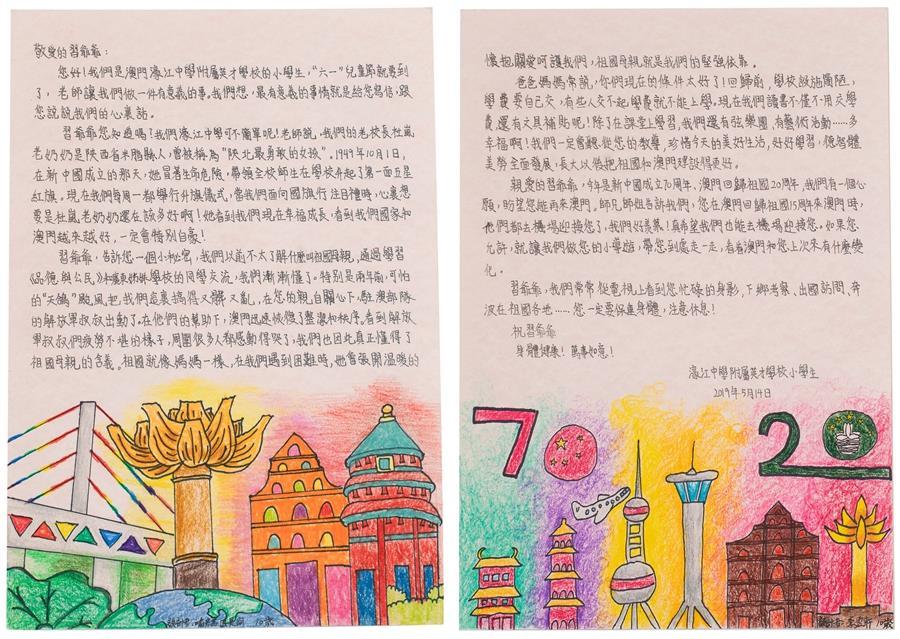 敬愛的習爺爺：
您好！我們是澳門濠江中學附屬英才學校的小學生，“六一”兒童節就要到
了，老師讓我們做一件有意義的事。我們想，最有意義的事情就是給您寫信，跟
您說說我們的心裏話。
習爺爺您知道嗎！我們濠江中學可不簡單呢！老師說，我們的老校長杜嵐
老奶奶是陝西省米脂縣人，曾被稱為“陝北最勇敢的女孩”。1949年10月1日，
在新中國成立的那天，她冒著生命危險，帶領全校師生在學校升起了第一面五星
紅旗。現在我們每周一都舉行升旗儀式，當我們面向國旗行注目禮時，心裏想
要是杜嵐老奶奶還在該多好啊！她看到我們現在幸福成長，看到我們國家和
澳門越來越好，一定會特別自豪！
習爺爺，告訴您一個小秘密，我們以前不太了解什麼叫祖國母親，通過學習
《品德與公民》和學校的同學交流，我們漸漸懂了。特別是兩年前，可怕
的“天鴿”颱風把我們這裏搞得又髒又亂，在您的親自關心下，駐澳部隊
的解放軍叔叔出動了。在他們的幫助下，澳門迅速恢復了整潔和秩序。看到解放
軍叔叔們疲勞不堪的樣子，周圍很多人都感動得哭了，我們也因此真正懂得了
祖國母親的含義。祖國就像媽媽一樣，在我們遇到困難時，她會張開溫暖的
懷抱關愛呵護我們，祖國母親就是我們的堅強依靠。
爸爸媽媽常說，你們現在的條件太好了！回歸前，學校設施簡陋，
學費要自己交，有些人交不起學費就不能上學。現在我們讀書不僅不用交學
費，還有文具補貼呢！除了在課堂上學習，我們還有弦樂團，有藝術活動……多
幸福啊！我們一定會聽從您的教導，珍惜今天的美好生活，好好學習，德智體
美勞全面發展，長大以後把祖國和澳門建設得更好。
親愛的習爺爺，今年是新中國成立70周年，澳門回歸祖國20周年，我們有一個心
願，盼望您能再來澳門。師兄師姐告訴我們，您在澳門回歸祖國15周年來澳門時，
他們都去機場迎接您了，我們好羨慕！真希望我們也能去機場迎接您。如果您
允許，就讓我們做您的小導遊，帶您到處走一走，看看澳門和您上次來有什麼變
化。
習爺爺，我們常常從電視上看到您忙碌的身影，下鄉考察、出國訪問、奔
波在祖國各地……您一定要保重身體，注意休息！
祝習爺爺
身體健康！萬事如意！
濠江中學附屬英才學校小學生
2019年5月14日
70
20
10歲
10歲